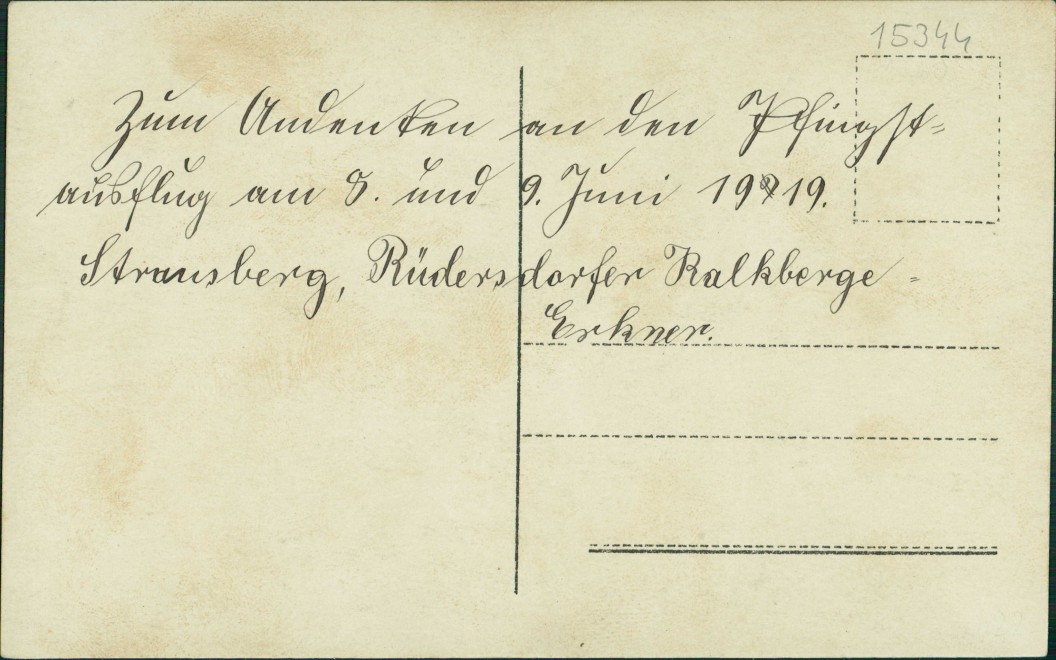 15344
Zum Andenken an den Pfingst=
ausflug am 8. und 9. Juni 1919.
Strausberg, Rüdersdorfer Kalkberge =
Erkner.